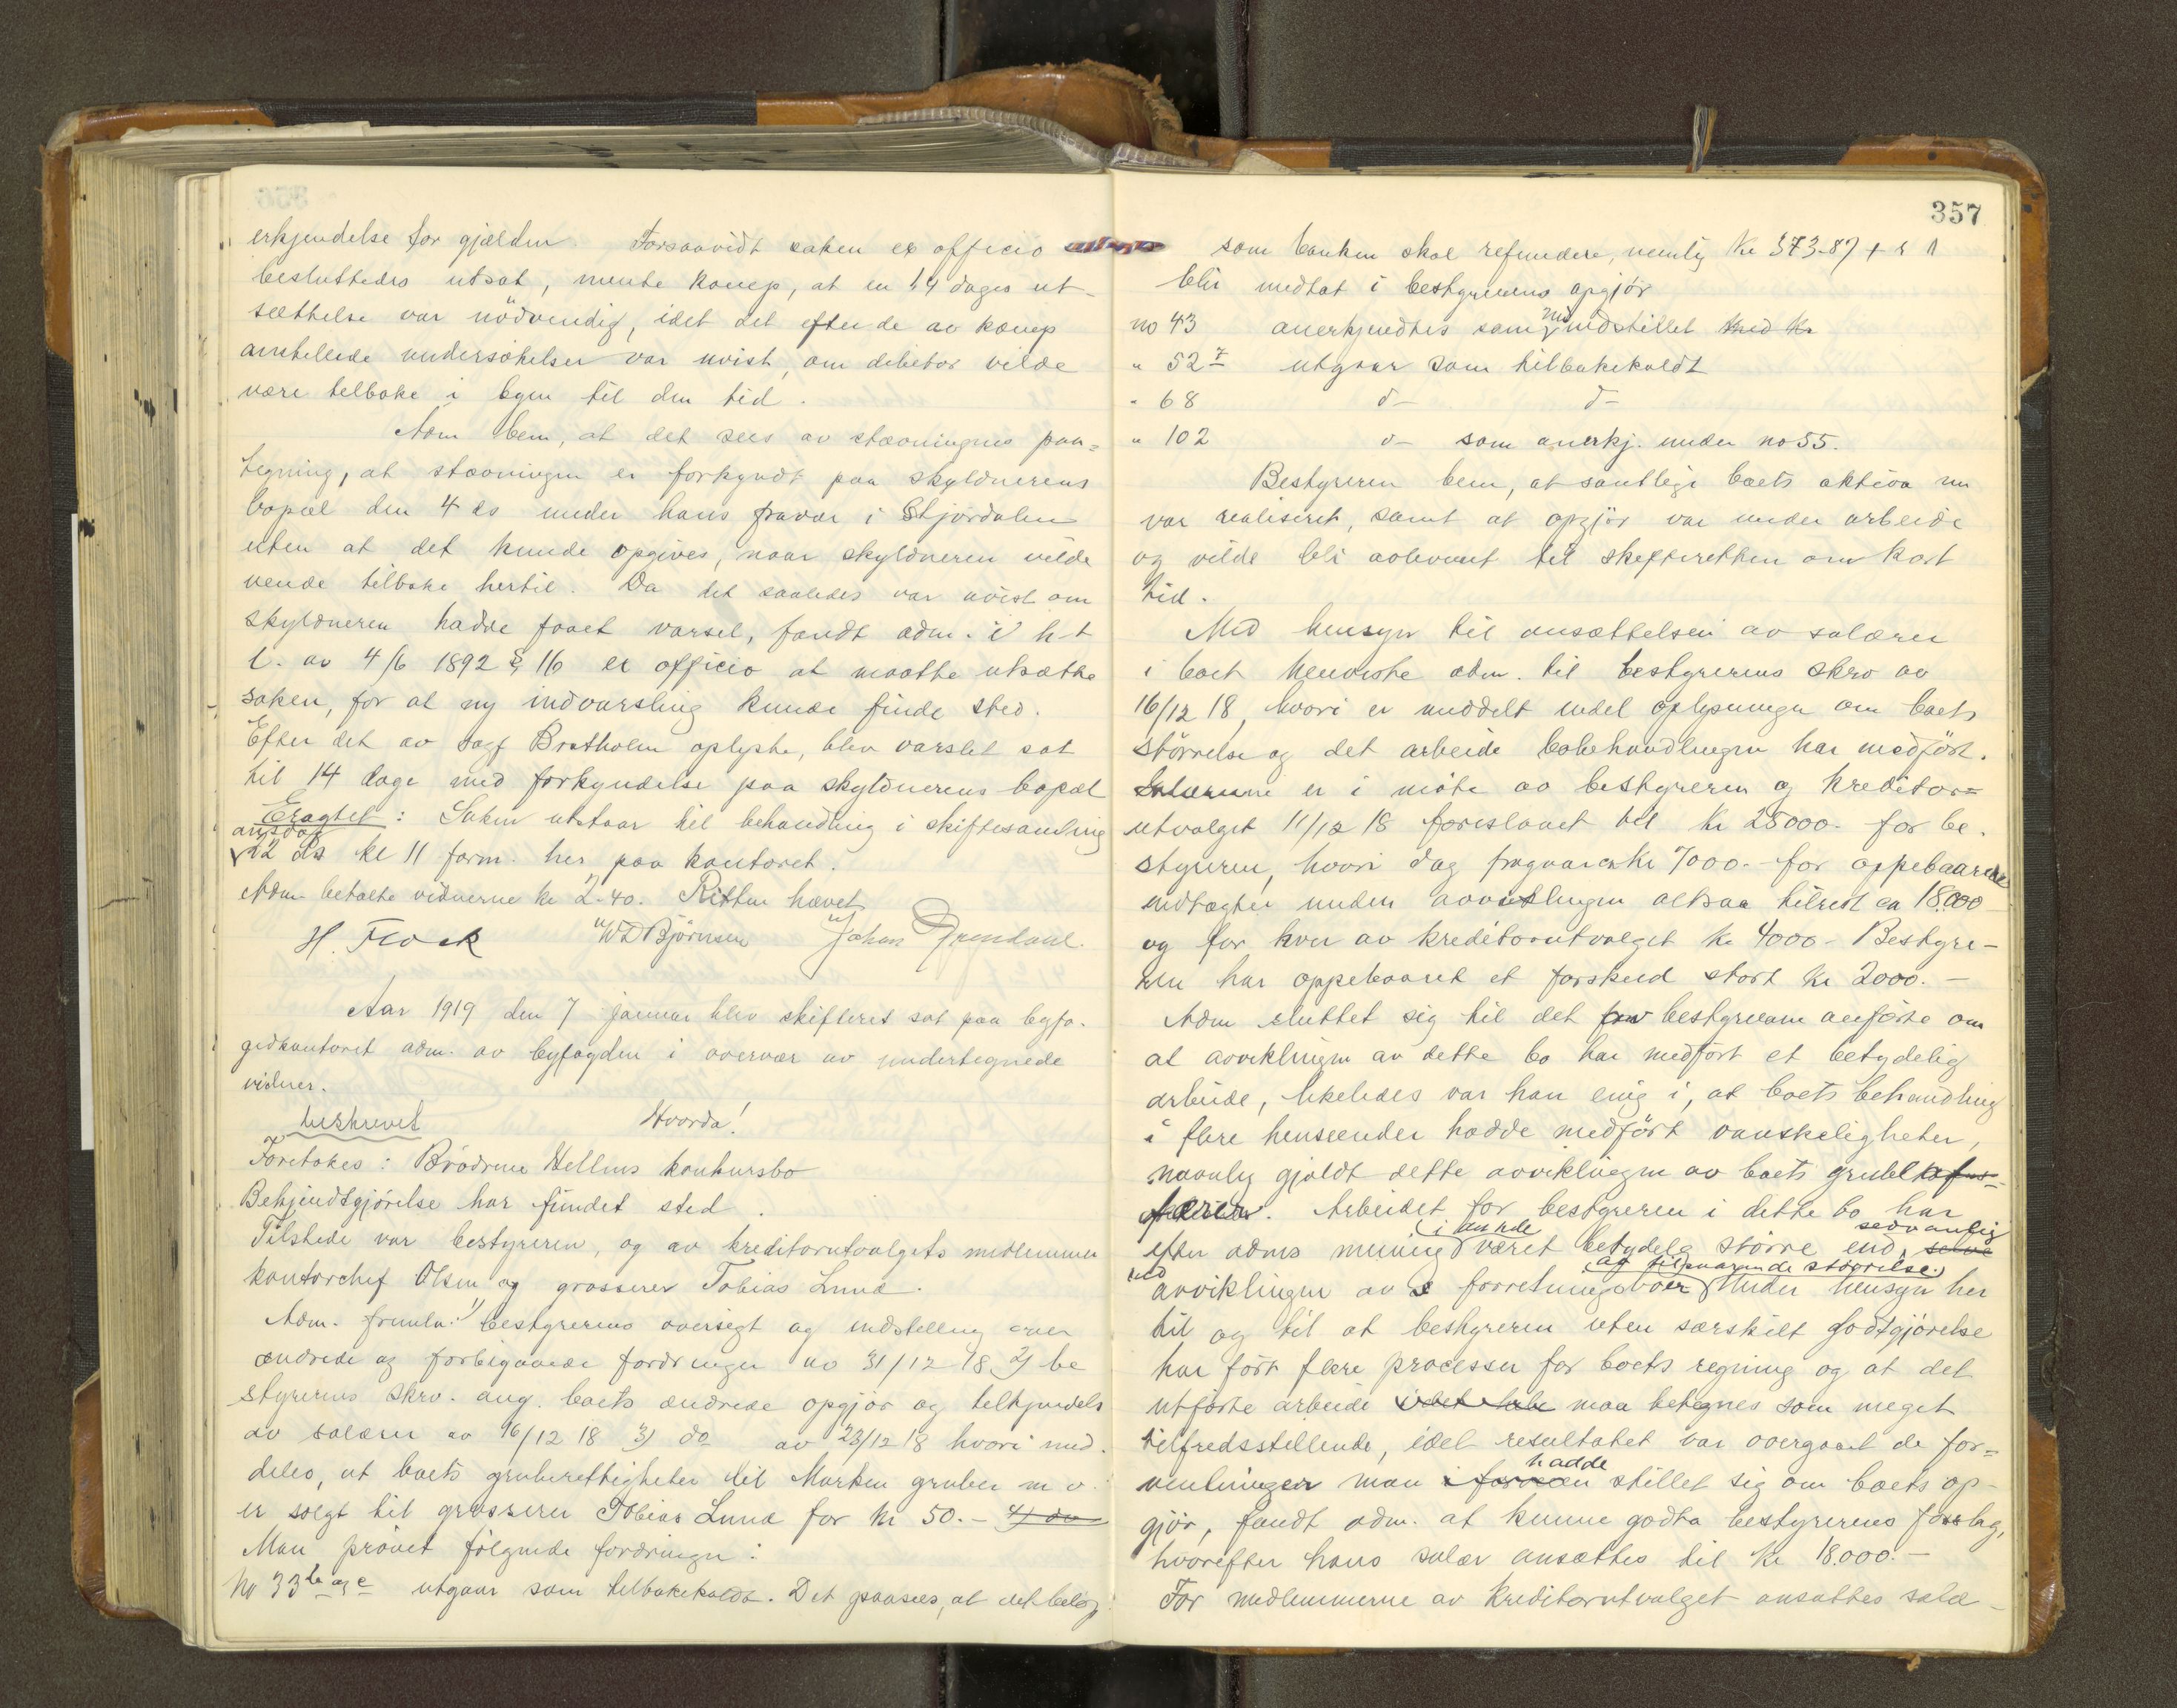 erkjendelse for gjælden Forsaavidt saken ex officio
besluttedes utsat, mente konep, at en 14 dages ut-
sættelse var nödvendig, idet det efter de av konep
anstellede undersökelser var uvist, om debitor vilde
være tilbake i byen til den tid.
Adm bem, at det sees av stævningens paa=
tegning, at stævningen er forkyndt paa skyldnerens
bopæl den 4 ds under hans fravær i Stjördalen
uten at det kunde opgives, naar skyldneren vilde
vende tilbake hertil. Da det saaledes var uvist om
skyldneren hadde faaet varsel, fandt adm. i h-t
l. av 4/6 1892 § 16 ex officio at maatte utsætte
saken, for at ny indvarsling kunde finde sted.
Efter det av sagf Bratholm oplyste, blev varslet sat
til 14 dage med forkyndelse paa skyldnerens bopæl
Eragtet: Saken utstaar til behandling i skiftesamling
onsdag
22 ds kl 11 form. her paa kontoret.
Adm. betalte vidnerne kr 2-40. Retten hævet
H. Flock WD Björnsen Johan Grendahl.
Aar 1919 den 7 januar blev skifteret sat paa byfo-
gedkontoret adm. av byfogden i overvær av undertegnede
vidner.
beskrevet Hvorda!
Foretokes: Brödrene Hellms konkursbo
Bekjendtgjörelse har fundet sted.
Tilstede var bestyreren, og av kreditorutvalgets medlemmer
kontorchef Olsen og grosserer Tobias Lund.
Adm. fremla: 1) bestyrerens oversigt og indstilling over
ændrede og forbigaaede fordringer av 31/12 18 2) be
styrerens skrv. ang. boets ændrede opgjör og tilkjendels
av salærer av 16/12 18 3) do av 23/12 18 hvori med-
deles, at boets gruberettigheter til Marken gruber m v.
er solgt til grosserer Tobias Lund for kr 50.- 4) do
Man prövet fölgende fordringer:
No 33 b og c utgaar som tilbakekaldt. Det paasees, at det belöp
357
som banken skal refundere, nemlig kr 573-87 +
blir medtat i bestyrerens opgjör
no 43 anerkjendtes som indstillet med kr
" 52 utgaar som tilbakekaldt
" 68 d- d-
" 102 d- som anerkj. under no 55.
Bestyreren bem, at samtlige boets aktiva nu
var realiseret, samt at opgjör var under arbeide
og vilde bli avlevert til skifteretten om kort
tid.
Med hensyn til ansættelsen av salærer
i boet henviste adm. til bestyrerens skrv av
16/12 18, hvori er meddelt endel oplysninger om boets
störrelse og det arbeide bobehandlingen har medfört.
Salærerne er i möte av bestyreren og kreditor=
utvalget 11/12 18 foreslaaet til kr 25000.- for be-
styreren, hvori dog fragaar ca kr 7000.- for oppebaarne
indtægter under avviklingen altsaa tilrest ca 18.000
og for hver av kreditorutvalget kr 4000.- Bestyre-
ren har oppebaaret et forskud stort kr 2000.-
Adm sluttet sig til det fra bestyreren anförte om
at avviklingen av dette bo har medfört et betydelig
arbeide, likeledes var han enig i, at boets behandling
i flere henseender hadde medfört vanskeligheter,
navnlig gjaldt dette avviklingen av boets grube
færer. Arbeidet for bestyreren i dette bo har
i an rde sedvanlig
efter adms mening været betydelig större end selve
ved av tilsvarende störrelse.
avviklingen av forretningsboer Under hensyn her
til og til at bestyreren uten særskilt godtgjörelse
har fört flere processer for boets regning og at det
utförte arbeide maa betegnes som meget
tilfredsstillende, idet resultatet var overgaaet de for=
hadde
ventninger man i forveien stillet sig om boets op-
gjör, fandt adm. at kunne godta bestyrerens forslag,
hvorefter hans salær ansættes til kr 18.000.-
For medlemmerne av kreditorutvalget ansattes salæ-